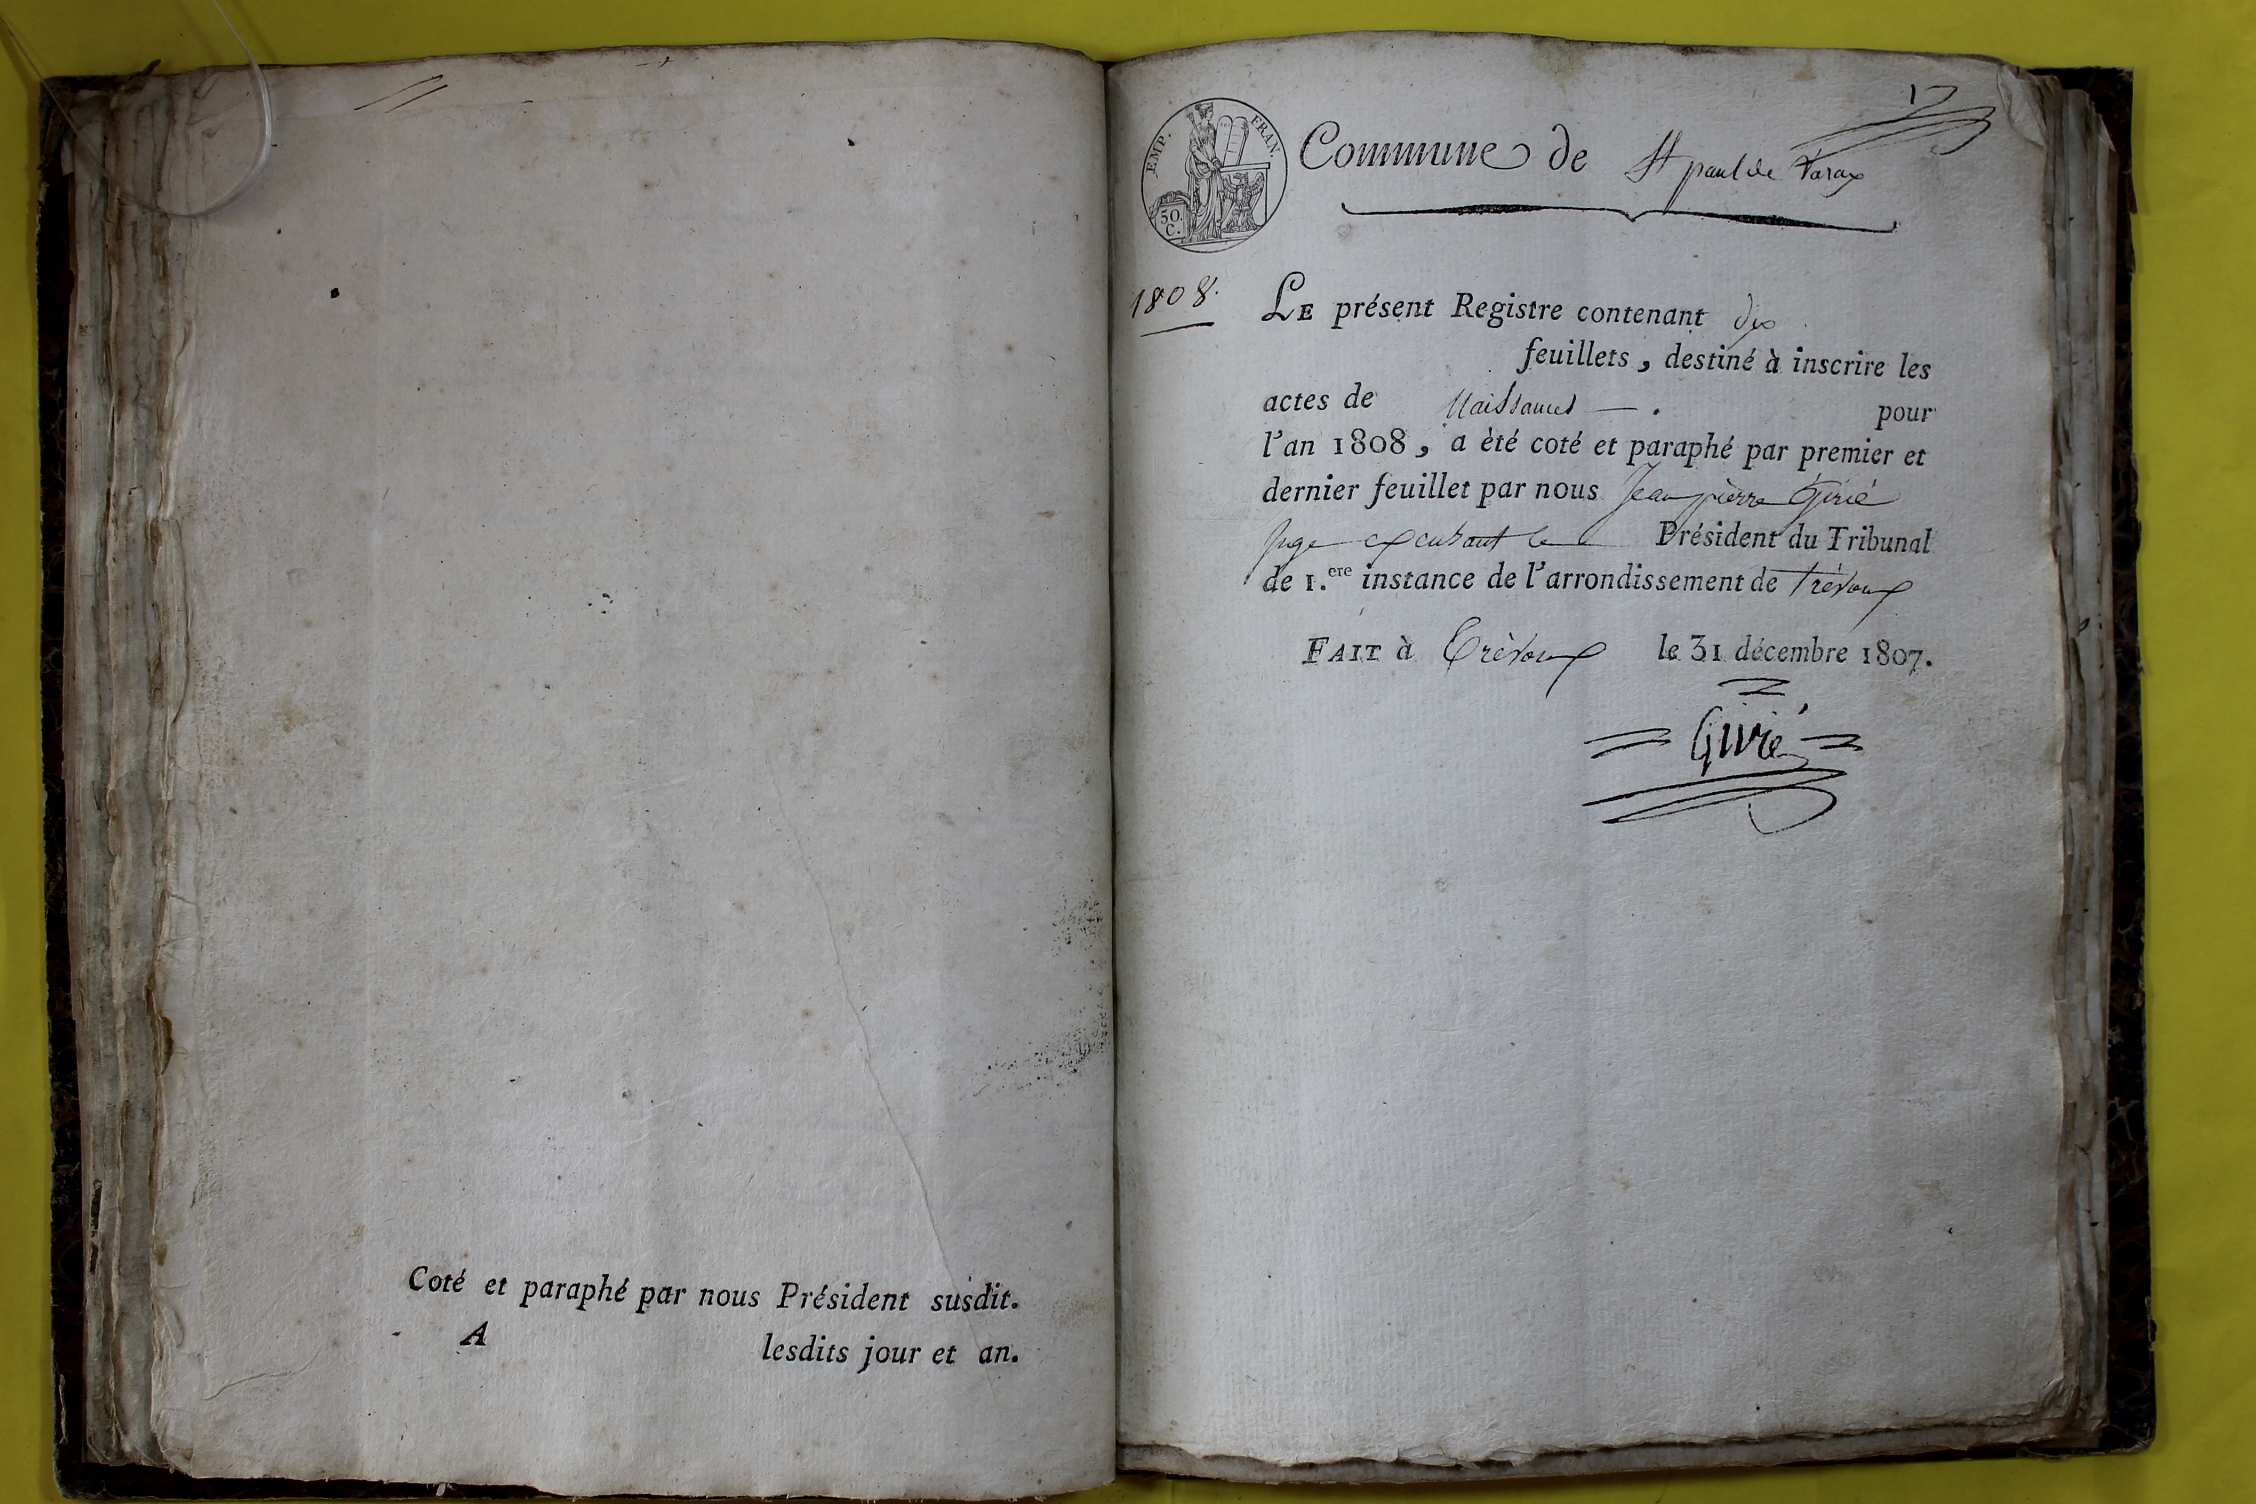 Coté et paraphé par nous Président susdit.
A lesdits jour et an.
1
EMP. FRAN.
50.
C.
Commune de St paul de Varax
1808.
LE présent Registre contenant dix
feuillets, destiné à inscrire les
actes de Naissances — . pour
l'an 1808, a èté coté et paraphé par premier et
dernier feuillet par nous Jean pierre Girié
Juge excusant le Président du Tribunal
de 1.ere instance de l'arrondissement de Trévoux
FAIT à Trévoux le 31 décembre 1807.
Girié